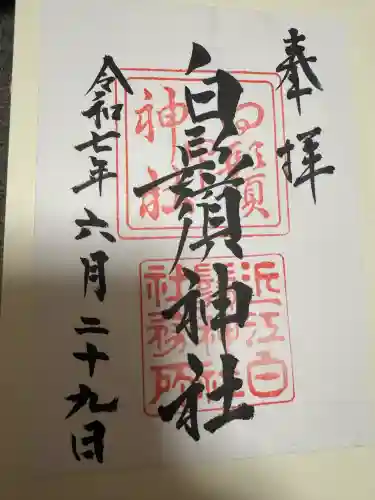 奉拝
白鬚神社
令和七年六月二十九日
白鬚
神社
近江白
鬚神社
社務所